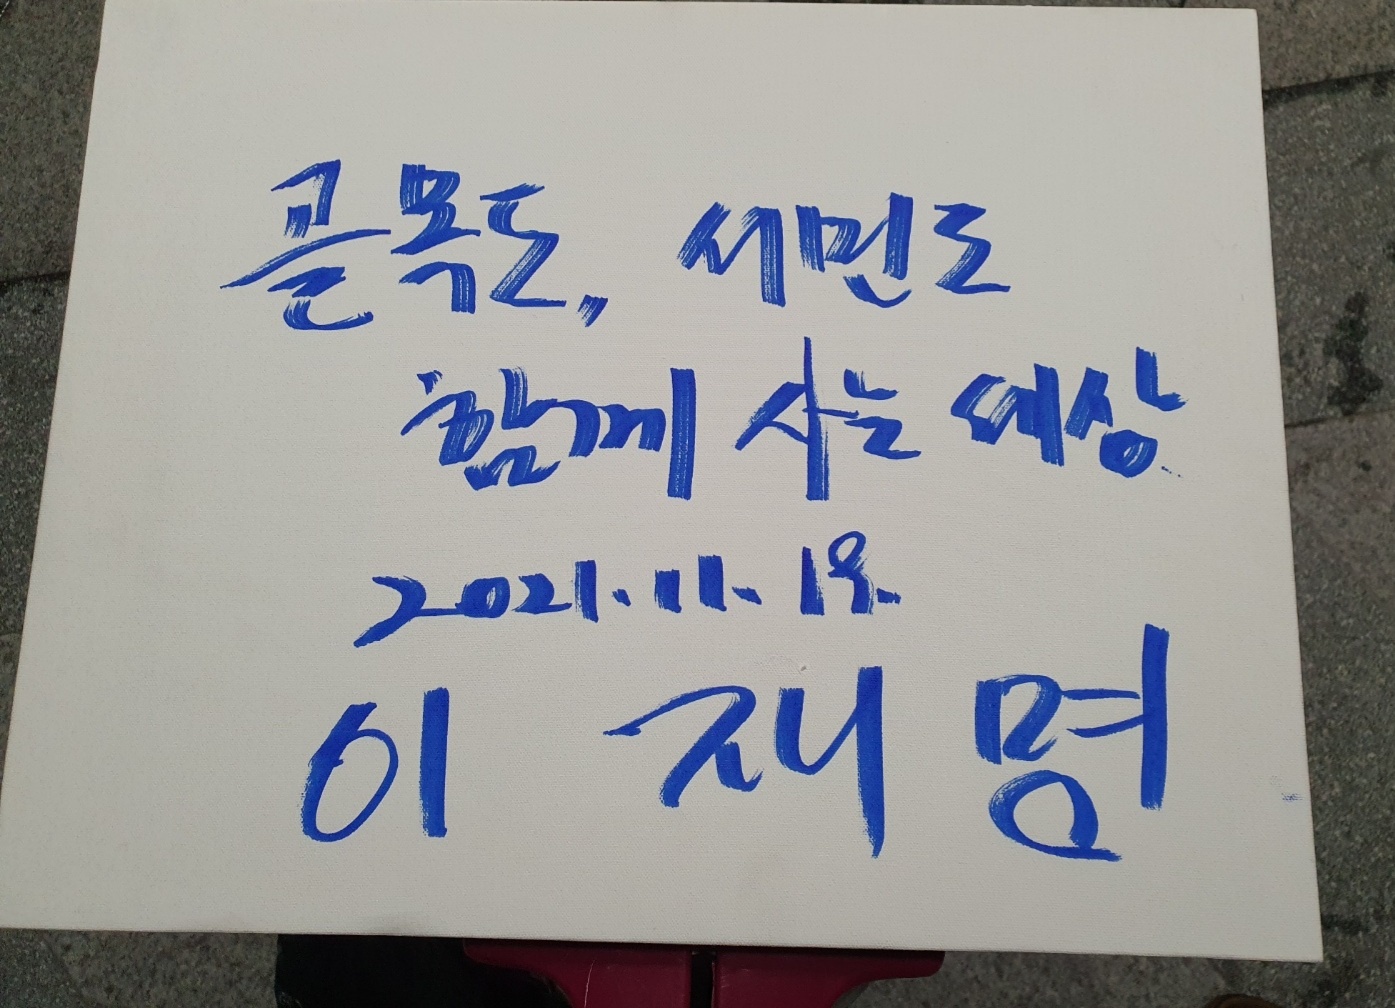 골목도, 서민도
함께 사는 세상
2021. 11. 19.
이 재 명